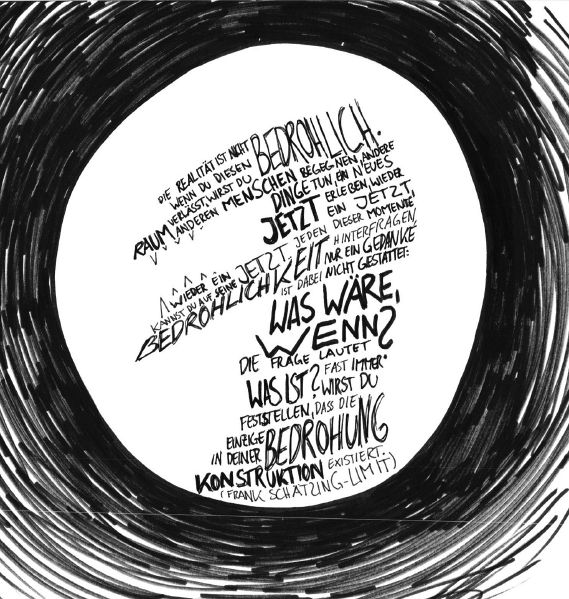 DIE REALITÄT IST NICHT BEDROHLICH.
WENN DU DIESEN
RAUM VERLÄSST, WIRST DU
ANDEREN MENSCHEN BEGEGNEN, ANDERE
DINGE TUN, EIN NEUES
JETZT ERLEBEN, WIEDER
EIN JETZT,
WIEDER EIN JETZT, JEDEN DIESER MOMENTE
KANNST DU AUF SEINE BEDROHLICHKEIT HINTERFRAGEN,
NUR EIN GEDANKE
IST DABEI NICHT GESTATTET:
WAS WÄRE,
WENN?
DIE FRAGE LAUTET
WAS IST? FAST IMMER
WIRST DU
FESTSTELLEN, DASS DIE
EINZIGE BEDROHUNG
IN DEINER
KONSTRUKTION EXISTIERT.
(FRANK SCHÄTZING-LIMIT)